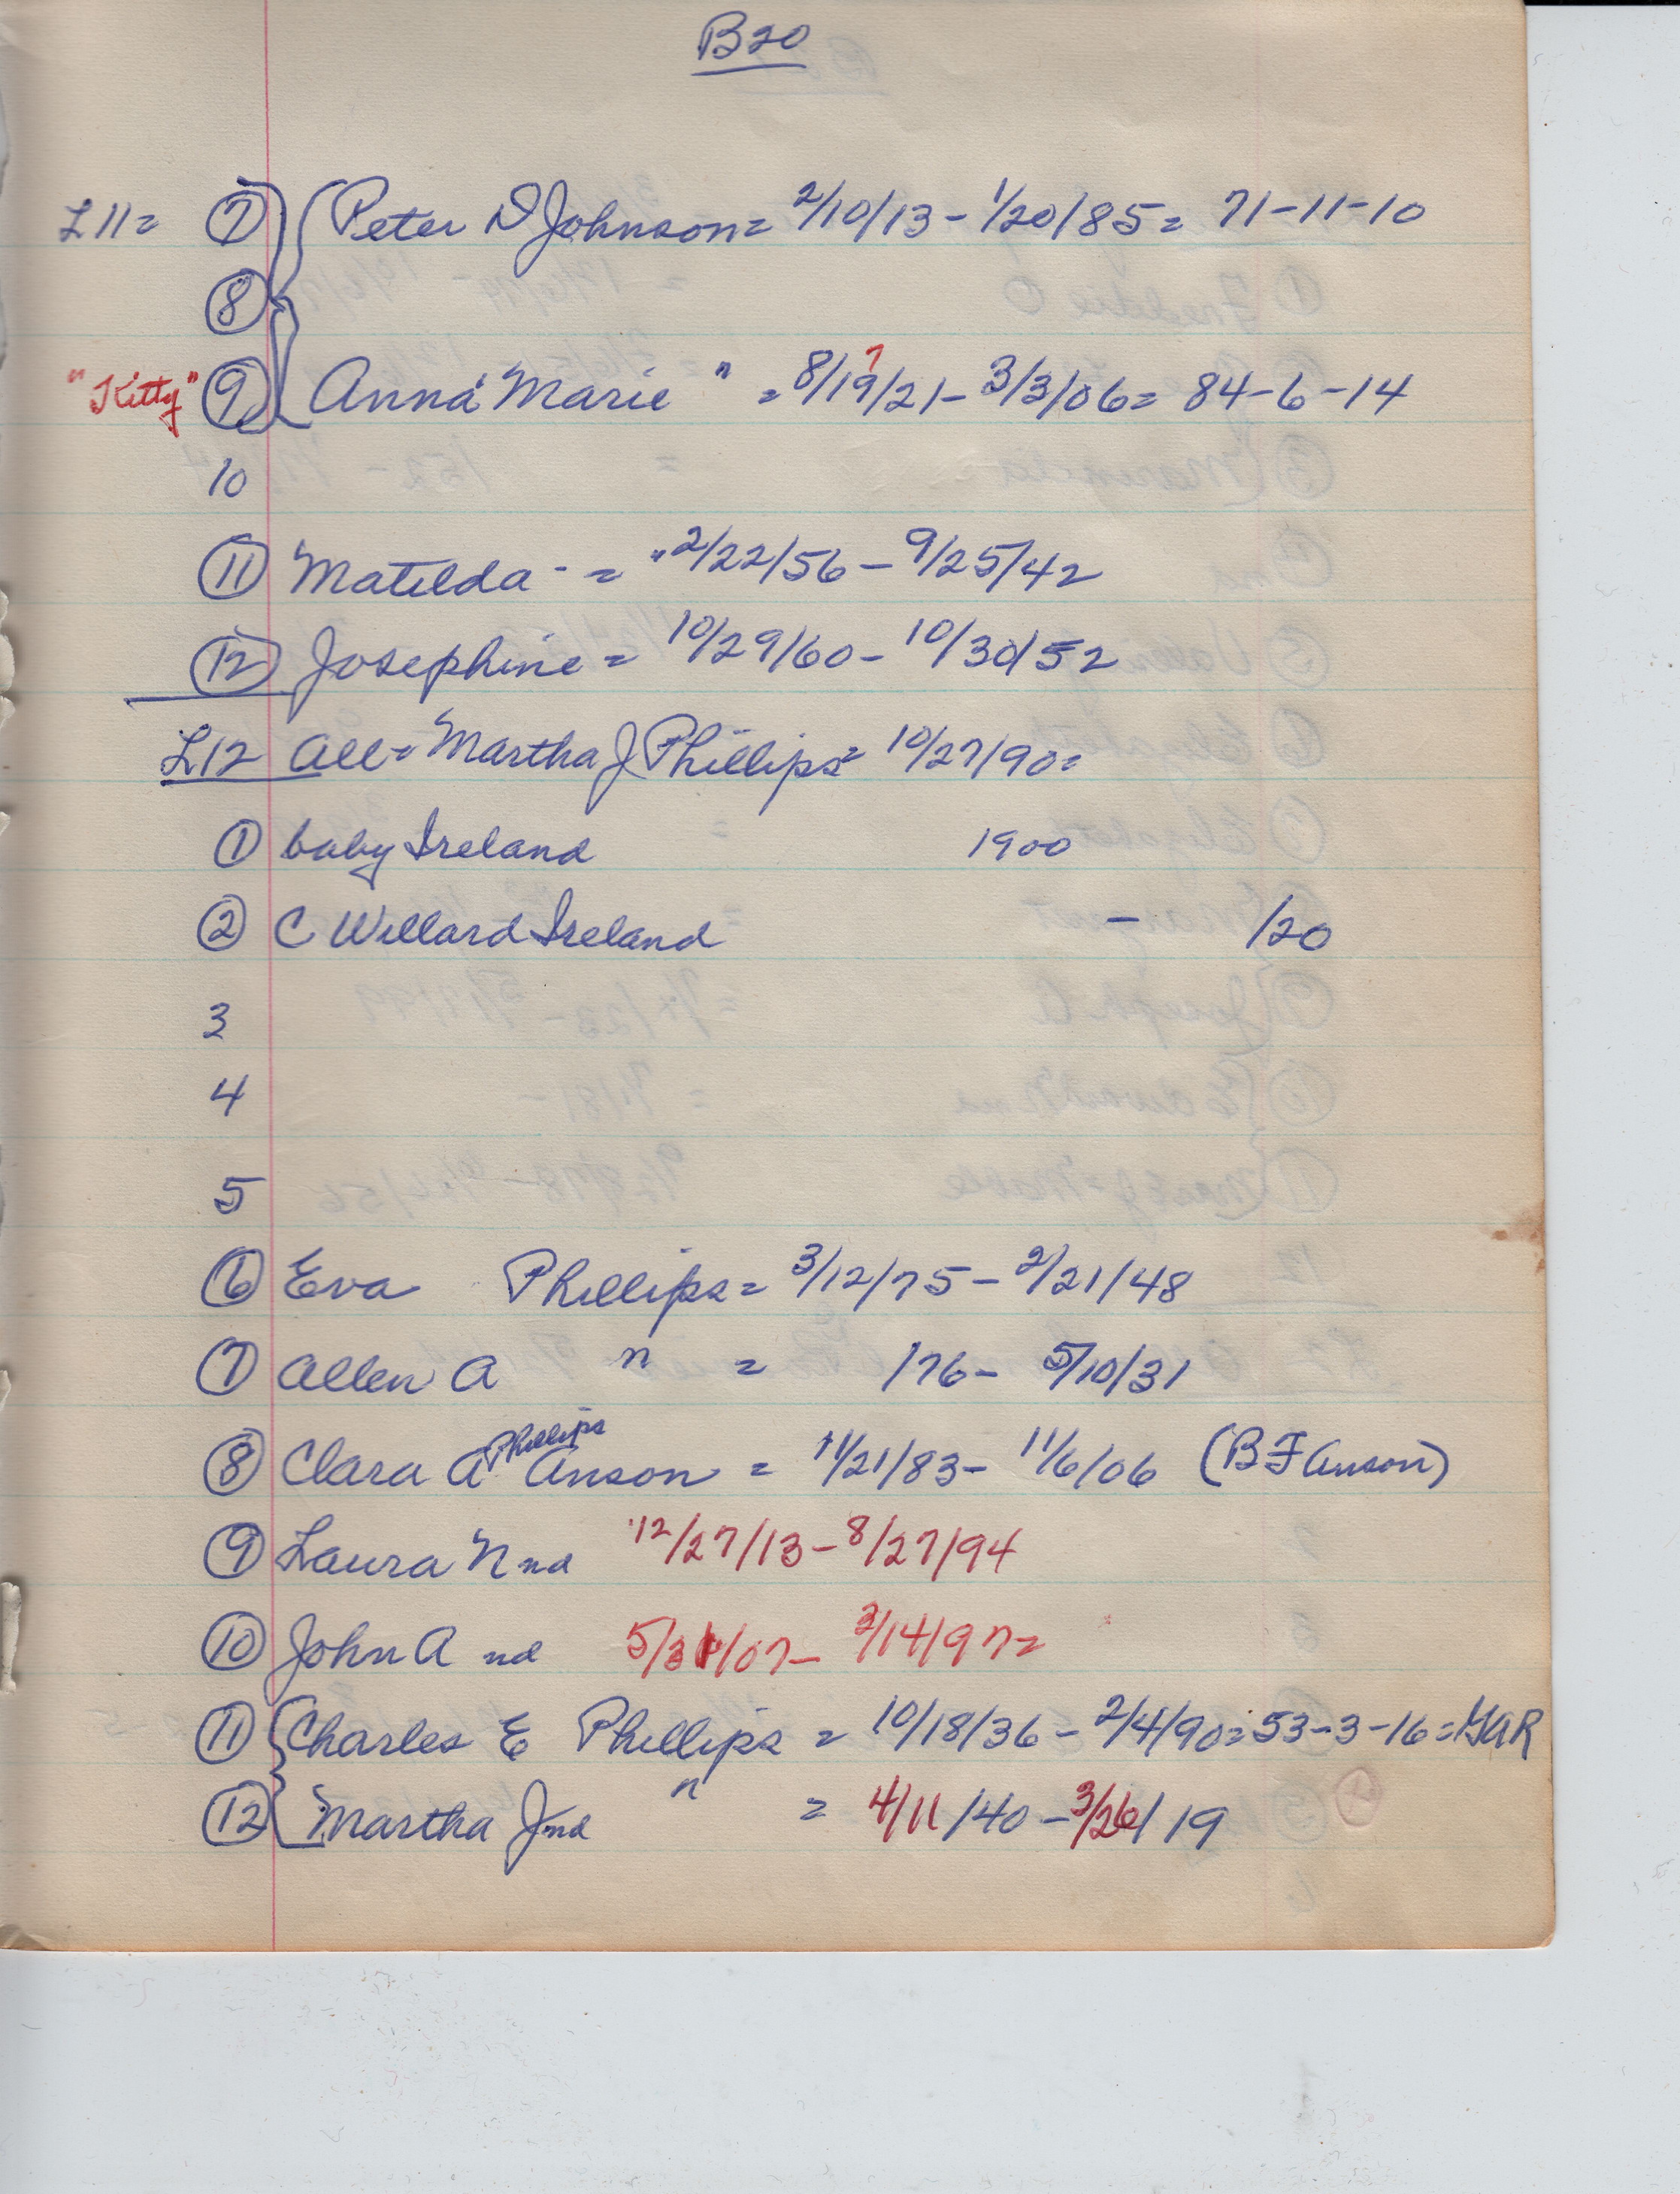 B20
L11= 7 Peter D Johnson = 2/10/13 - 1/20/85 = 71-11-10
8
"Kitty" 9 Anna Marie " = 8/19/21 - 3/3/06 = 84-6-14
7
10
11 Matilda - = "2/22/56 - 9/25/42
12 Josephine = 10/29/60 - 10/30/52
L12 All = Martha J Phillips = 10/27/90 =
1 baby Ireland 1900
2 C Willard Ireland - /20
3
4
5
6 Eva Phillips = 3/12/75 - 2/21/48
7 Allen A " = /76 - 5/10/31
8 Clara A Phillips Anson = 11/21/83 - 11/6/06 (B F Anson)
9 Laura N nd 12/27/13 - 8/27/94
10 John A nd 5/31/07 - 3/14/97 =
11 Charles E Phillips = 10/18/36 - 2/4/90 = 53-3-16 = GAR
12 Martha J nd " = 4/11/40 - 3/26/19